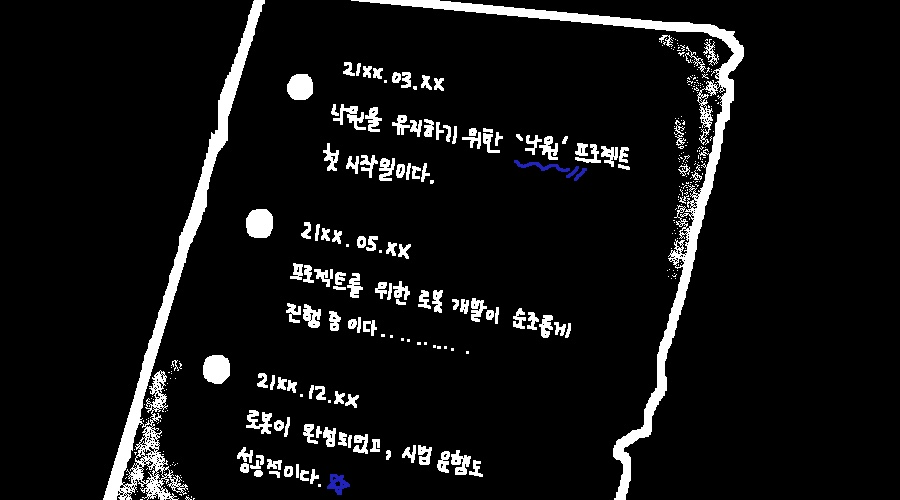 21XX.03.XX
낙원을 유지하기 위한 '낙원' 프로젝트
첫 시작일이다.
21XX.05.XX
프로젝트를 위한 로봇 개발이 순조롭게
진행 중 이다..........
21XX.12.XX
로봇이 완성되었고, 시범 운행도
성공적이다.☆